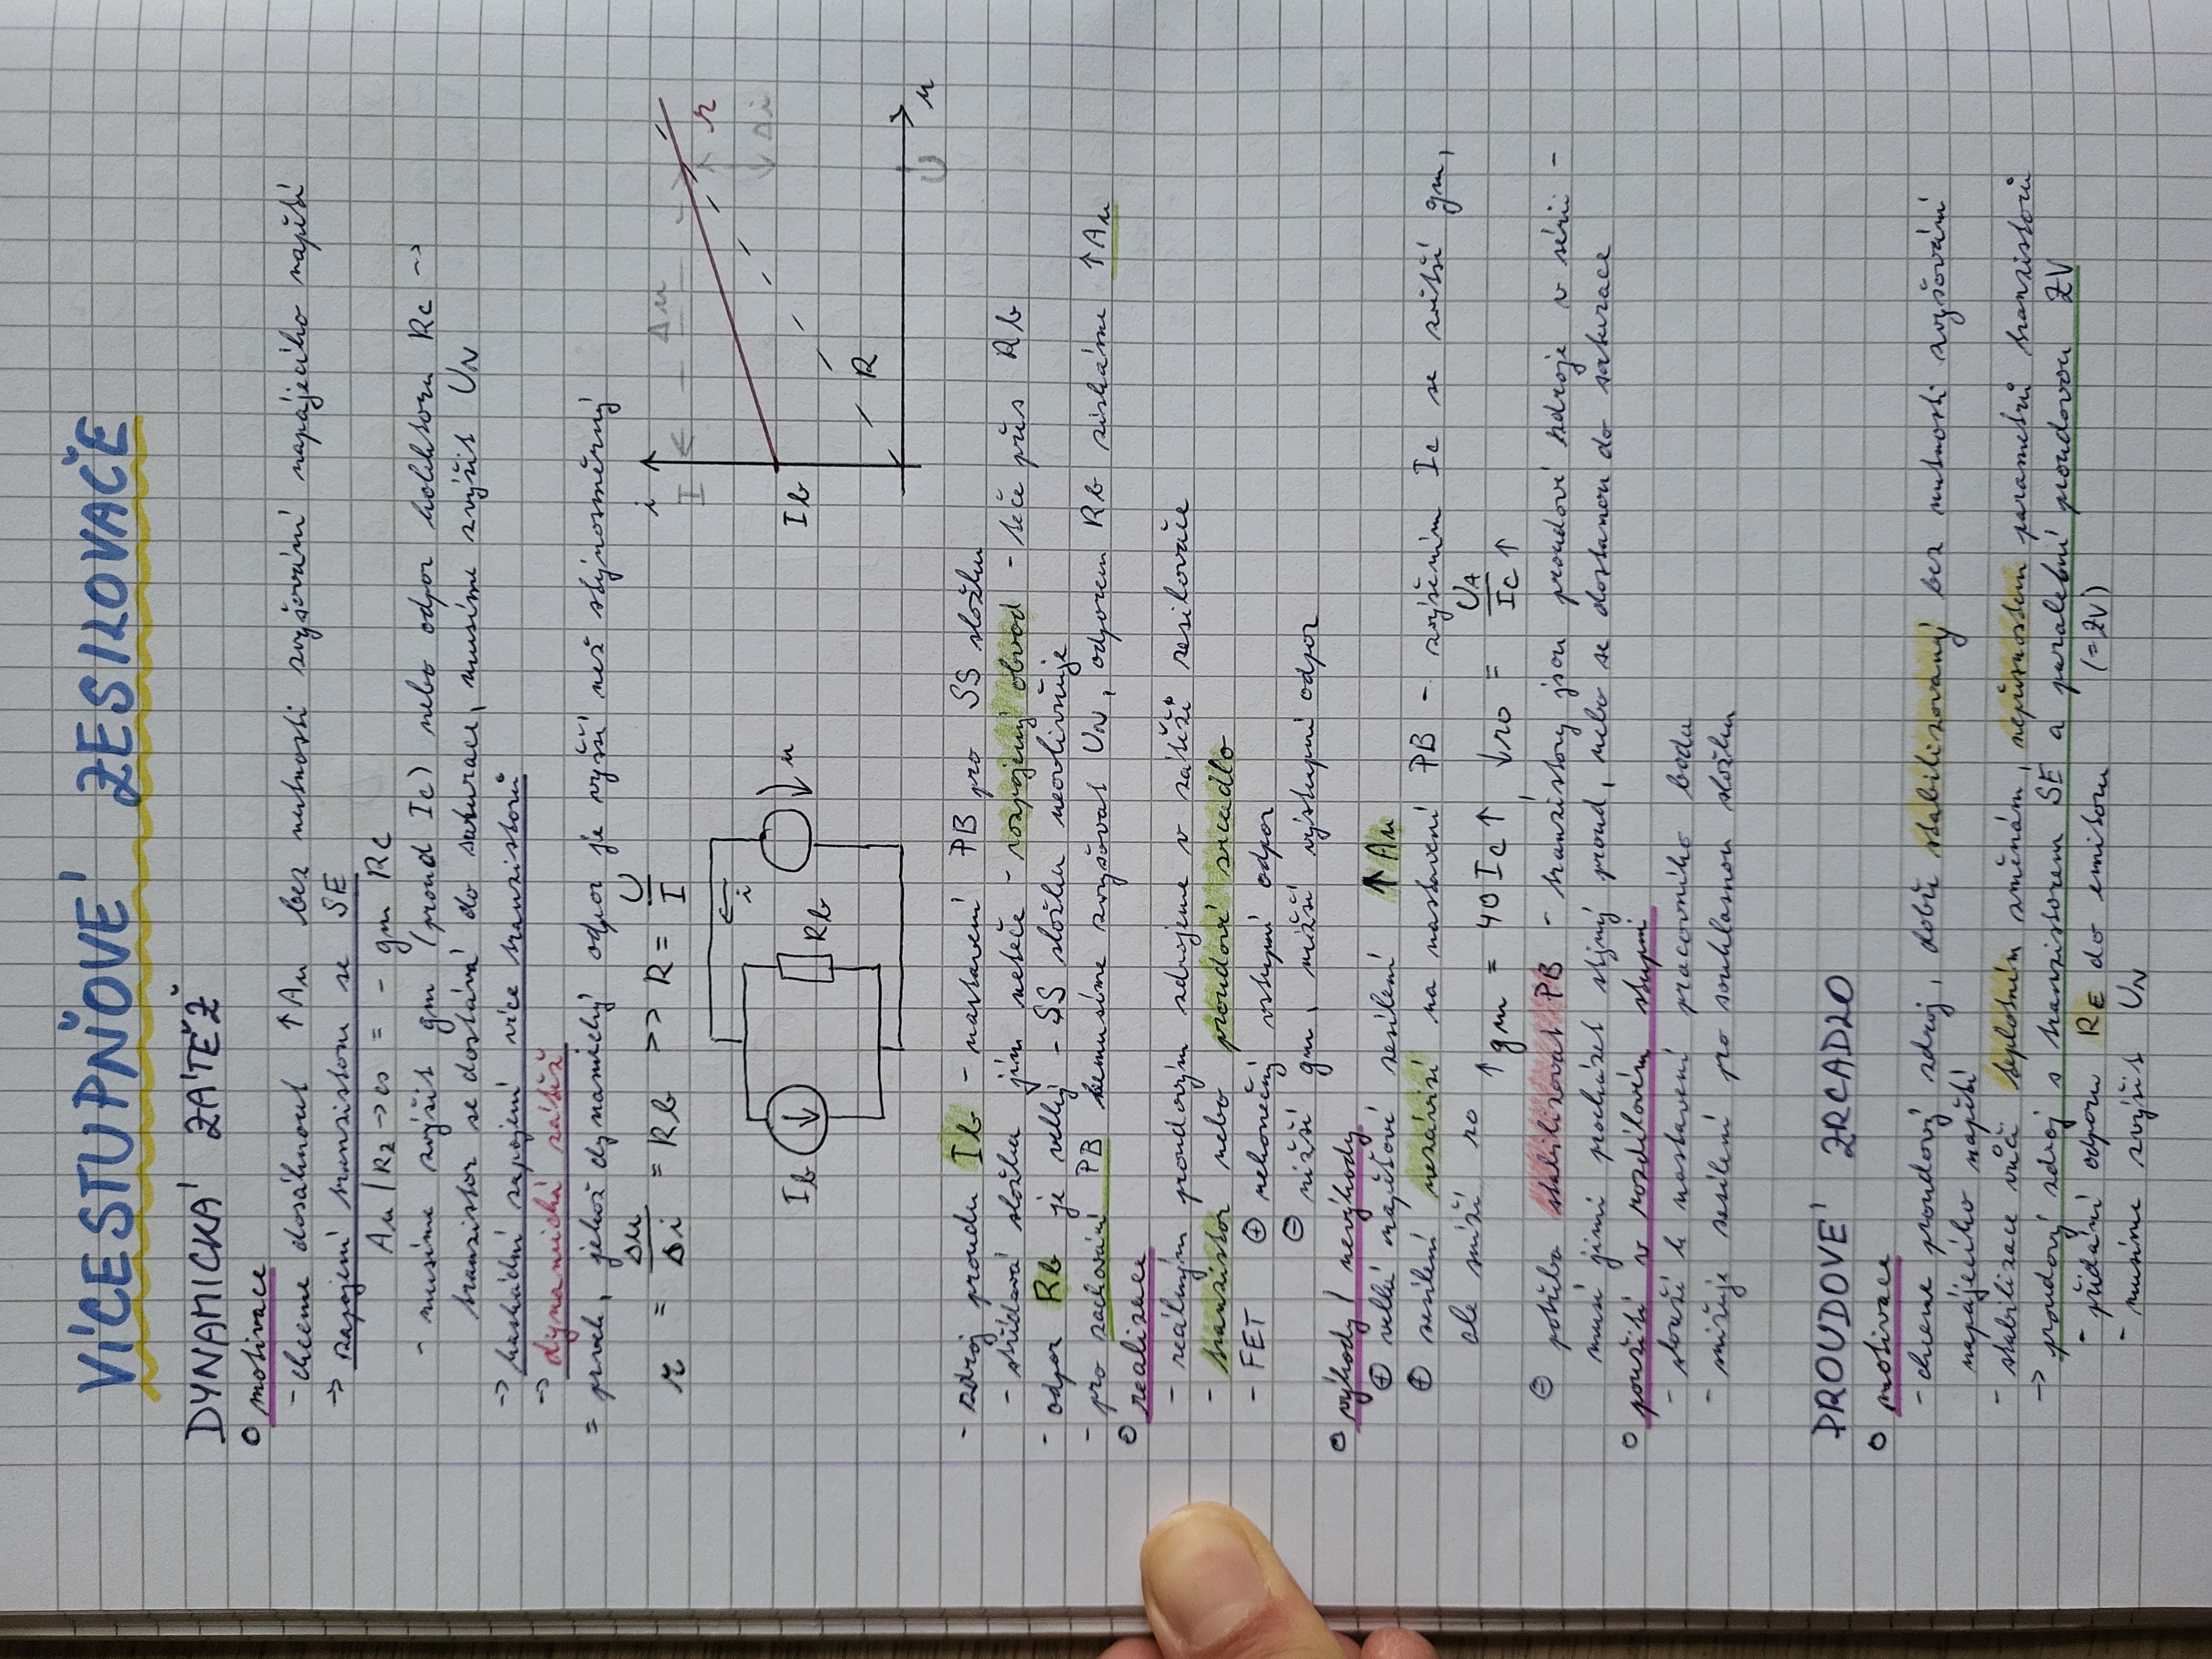 VÍCESTUPŇOVÉ ZESILOVAČE
DYNAMICKÁ ZÁTĚŽ
motivace
- chceme dosáhnout ↑Au bez nutnosti zvyšování napájecího napětí
→ zapojení tranzistoru se SE
Au |Rz→∞ = - gm Rc
- musíme zvýšit gm (proud Ic) nebo odpor kolektoru Rc →
tranzistor se dostává do saturace, musíme zvýšit UN
→ kaskádní zapojení více tranzistorů
→ dynamická zátěž
= prvek, jehož dynamický odpor je vyšší než stejnosměrný
r = Δu/Δi = Rb >> R = U/I
i
I
Δu
r
Δi
Ib
R
U
u
i
Ib
Rb
u
- zdroj proudu Ib - nastavení PB pro SS složku
- střídavá složka jím neteče - rozpojený obvod - teče přes Rb
- odpor Rb je velký - SS složku neovlivňuje
- pro zachování PB nemusíme zvyšovat UN, odporem Rb získáme ↑Au
realizace
- reálným proudovým zdrojeme v zátěži zesilovače
- tranzistor nebo proudové zrcadlo
- FET ⊕ nekonečný vstupní odpor
⊖ nižší gm, nižší výstupní odpor
výhody / nevýhody
⊕ velké napěťové zesílení ↑Au
⊕ zesílení nezávisí na nastavení PB - zvýšením Ic se zvětší gm,
ale sníží ro
↑gm = 40 Ic↑, ↓ro = UA/Ic↑
⊖ potřeba stabilizovat PB - tranzistory jsou proudové zdroje v sérii -
musí jimi procházet stejný proud, nebo se dostanou do saturace
použití v rozdílovém stupni
- slouží k nastavení pracovního bodu
- snižuje zesílení pro souhlasnou složku
PROUDOVÉ ZRCADLO
motivace
- chceme proudový zdroj, dobře stabilizovaný bez nutnosti zvyšování
napájecího napětí
- stabilizace vůči teplotním změnám, nepřesnostem parametrů tranzistorů
→ proudový zdroj s tranzistorem SE a paralelní proudovou ZV
- přidání odporu RE do emitoru (=ZV)
- musíme zvýšit UN